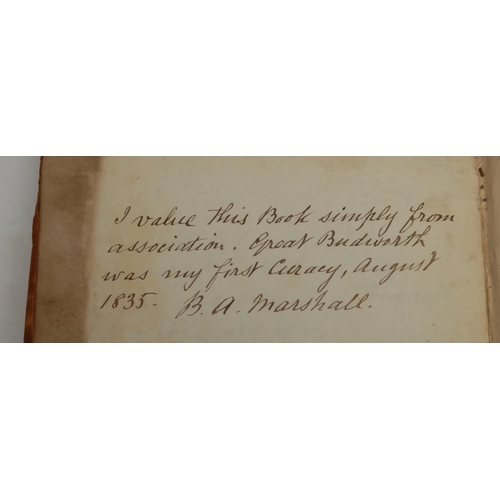 I value this Book simply from
association. Great Budworth
was my first Curacy, August
1835. B. A. Marshall.